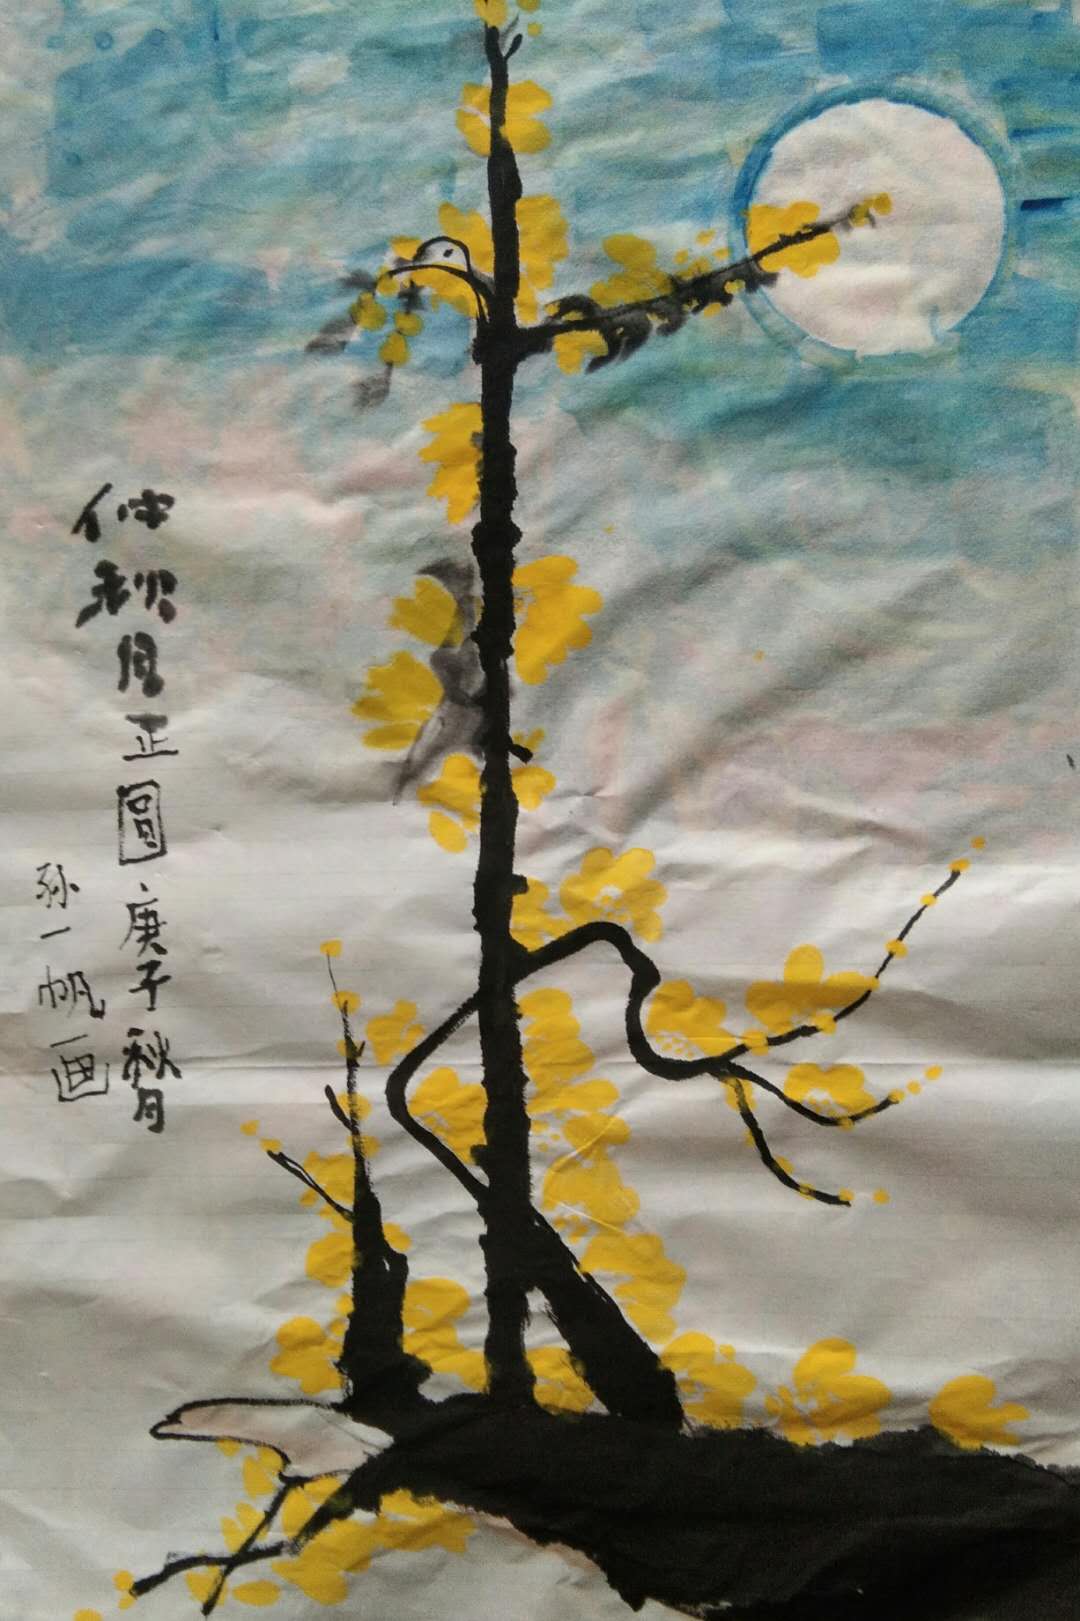 仲秋月正圓庚子秋月
孙一帆画